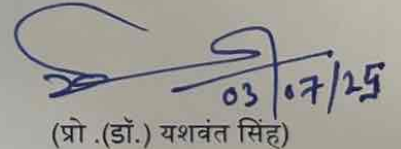 03/07/25
(प्रो .(डॉ.) यशवंत सिंह)